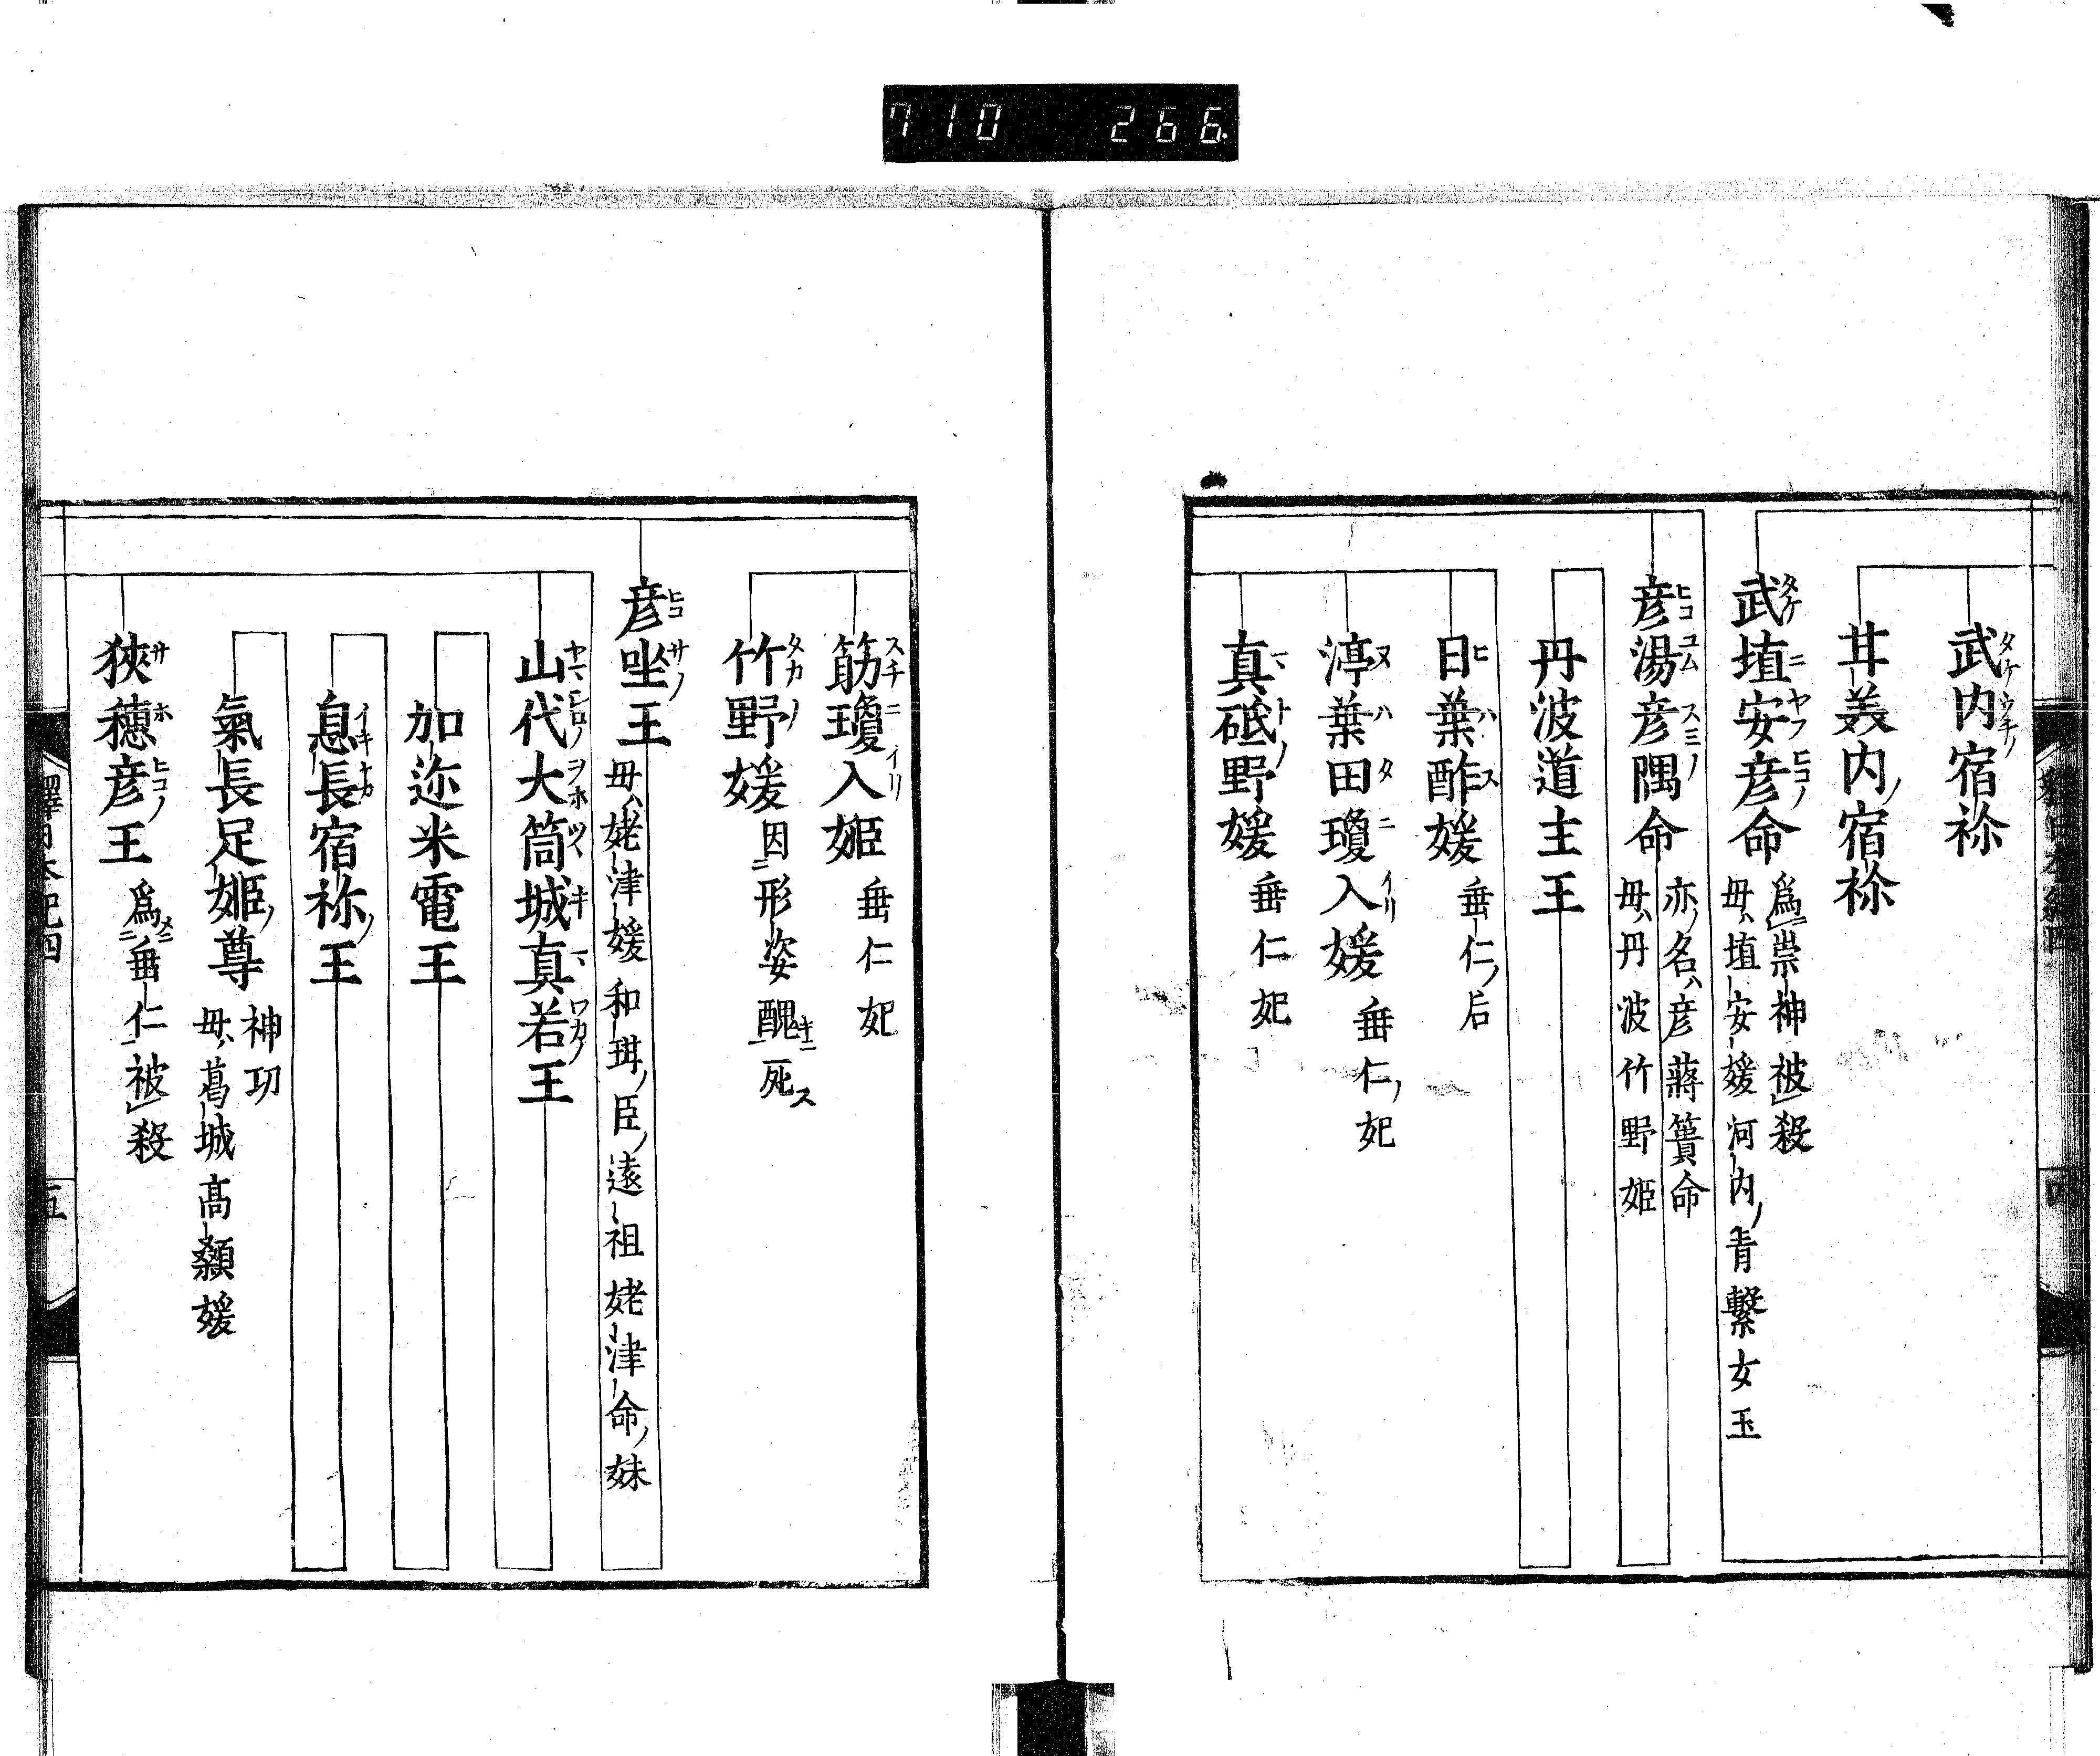 710 266
武内宿祢
甘美内ノ宿祢
武埴安彦命 為崇神被殺
母ハ埴安媛河内ノ青繋女玉
彦湯彦隅命 亦ノ名ハ彦蒋簀命
母ハ丹波竹野姫
丹波道主王
日葉酢媛 垂仁ノ后
渟葉田瓊入媛 垂仁ノ妃
真砥野媛 垂仁妃
筋瓊入姫 垂仁妃
竹野媛 因形姿醜死ス
彦坐王 母ハ姥津媛和珥ノ臣ノ遠祖姥津命ノ妹
山代大筒城真若王
加迩米電王
息長宿祢ノ王
氣長足姫ノ尊 神功
母ハ葛城高顙媛
狭穂彦王 為垂仁被殺
釋日本紀四
五